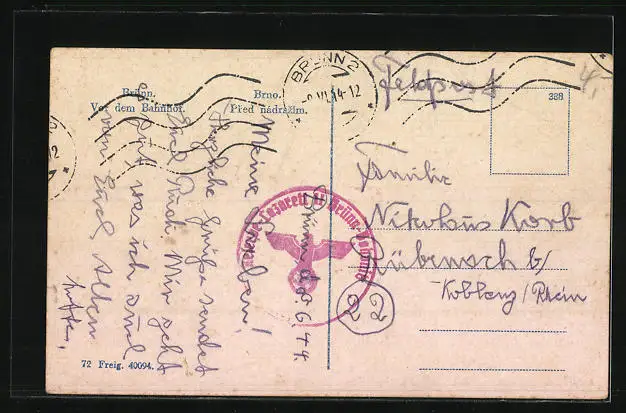 Brünn.
Vor dem Bahnhof.
Brno.
Před nádražím.
BRÜNN 2
Feldpost
388
Familie
Nikolaus Korb
Rübenach b/
Koblenz/Rhein
22
Brünn den 6.44
Meine Lieben!
Herzliche Grüße sendet
Euch Mir geht
es gut was ich auch
von Euch Allen
hoffe.
Lazarett Brünn
72 Freig. 40094.